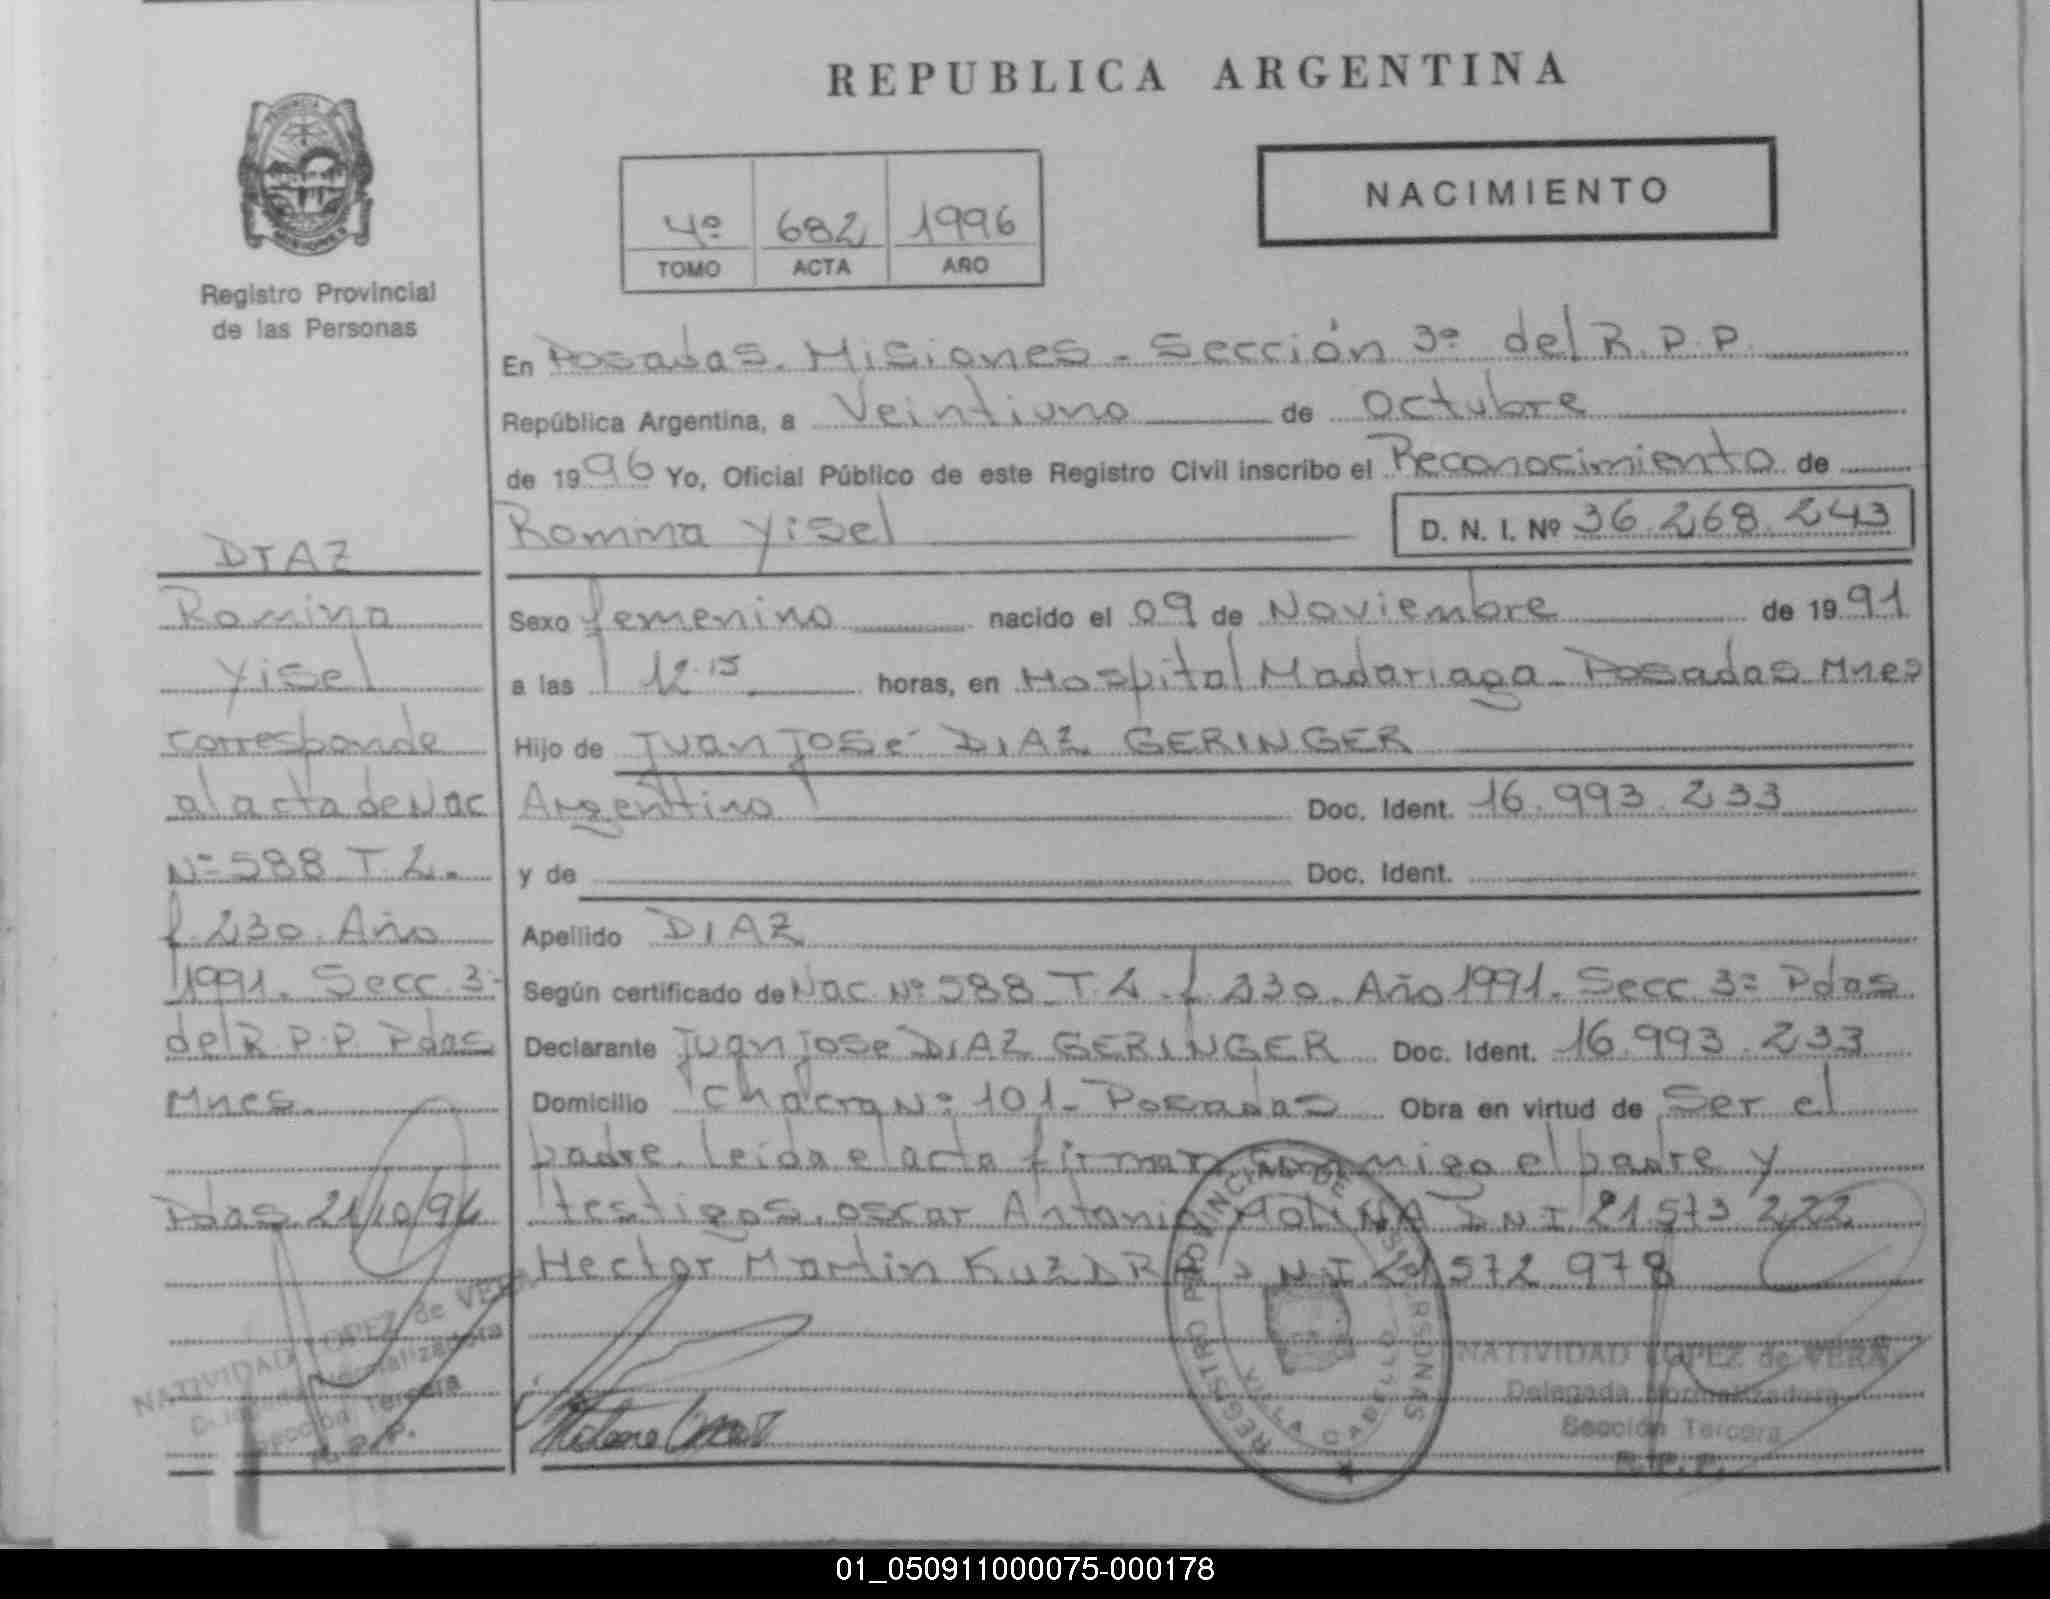 REPUBLICA ARGENTINA
NACIMIENTO
4º 682 1996
TOMO ACTA AÑO
Registro Provincial
de las Personas
En Posadas. Misiones - Sección 3º del R.P.P.
República Argentina, a Veintiuno de Octubre
de 1996 Yo, Oficial Público de este Registro Civil inscribo el Reconocimiento de
Romina Yisel D. N. I. Nº 36.268.243
Sexo femenino nacido el 09 de Noviembre de 1991
a las 12.15 horas, en Hospital Madariaga - Posadas Mnes
Hijo de Juan José DIAZ GERINGER
Argentino Doc. Ident. 16.993.233
y de Doc. Ident.
Apellido DIAZ
Según certificado de Nac Nº 588 T. 2. f 230. Año 1991. Secc 3ª Pdas
Declarante Juan Jose DIAZ GERINGER Doc. Ident. 16.993.233
Domicilio Chacra Nº 101 - Posadas Obra en virtud de Ser el
padre. leida el acta firman conmigo el padre y
testigos. oscar Antonio MOLINA DNI 21.573 222
Hector Martin D N I 21 572 978
DIAZ
Romina
Yisel
corresponde
al acta de Nac
Nº 588 T. 2.
f. 230. Año
1991. Secc. 3ª
del R.P.P. Pdas
Mnes.
Pdas 21/10/96
NATIVIDAD LOPEZ de VERA
Delegada Normalizadora
Sección Tercera
R. P. P.
REGISTRO PROVINCIAL DE LAS PERSONAS
VILLA CABELLO
NATIVIDAD LOPEZ de VERA
Delegada Normalizadora
Sección Tercera
R. P. P.
01_050911000075-000178